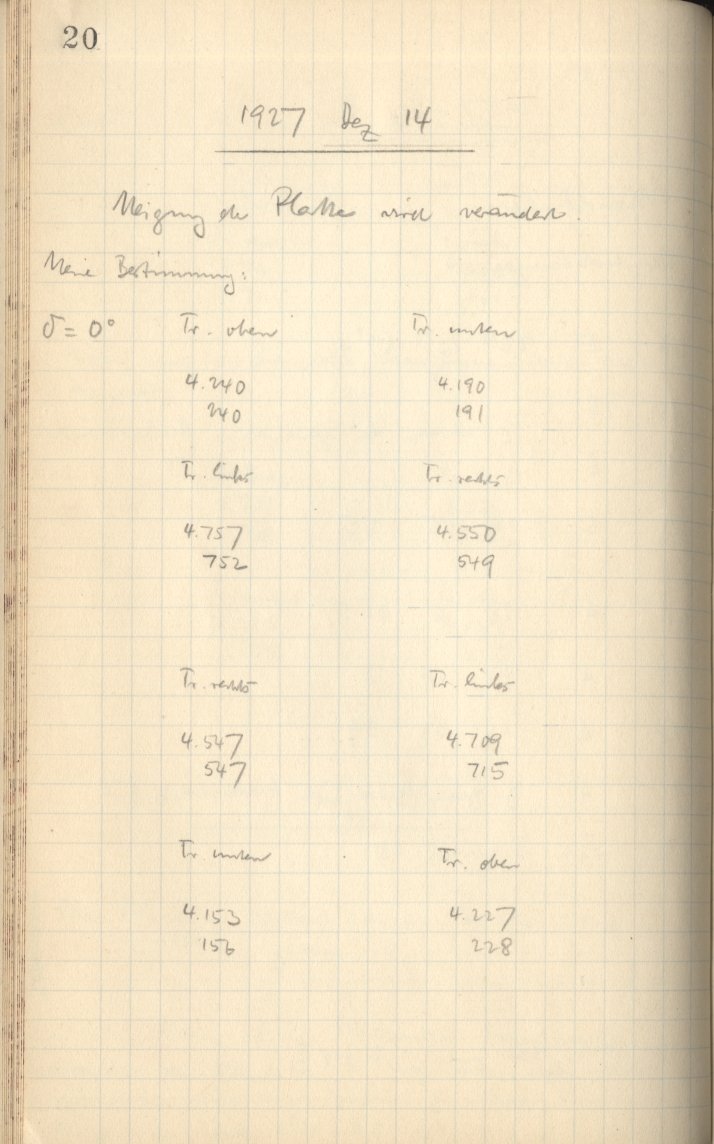 20
1927 Dez 14
Neigung der Platte wird verändert.
Neue Bestimmung:
δ = 0° Tr. oben Tr. unten
4.240 4.190
240 191
Tr. links Tr. rechts
4.757 4.550
752 549
Tr. rechts Tr. links
4.547 4.709
547 715
Tr. unten Tr. oben
4.153 4.227
156 228